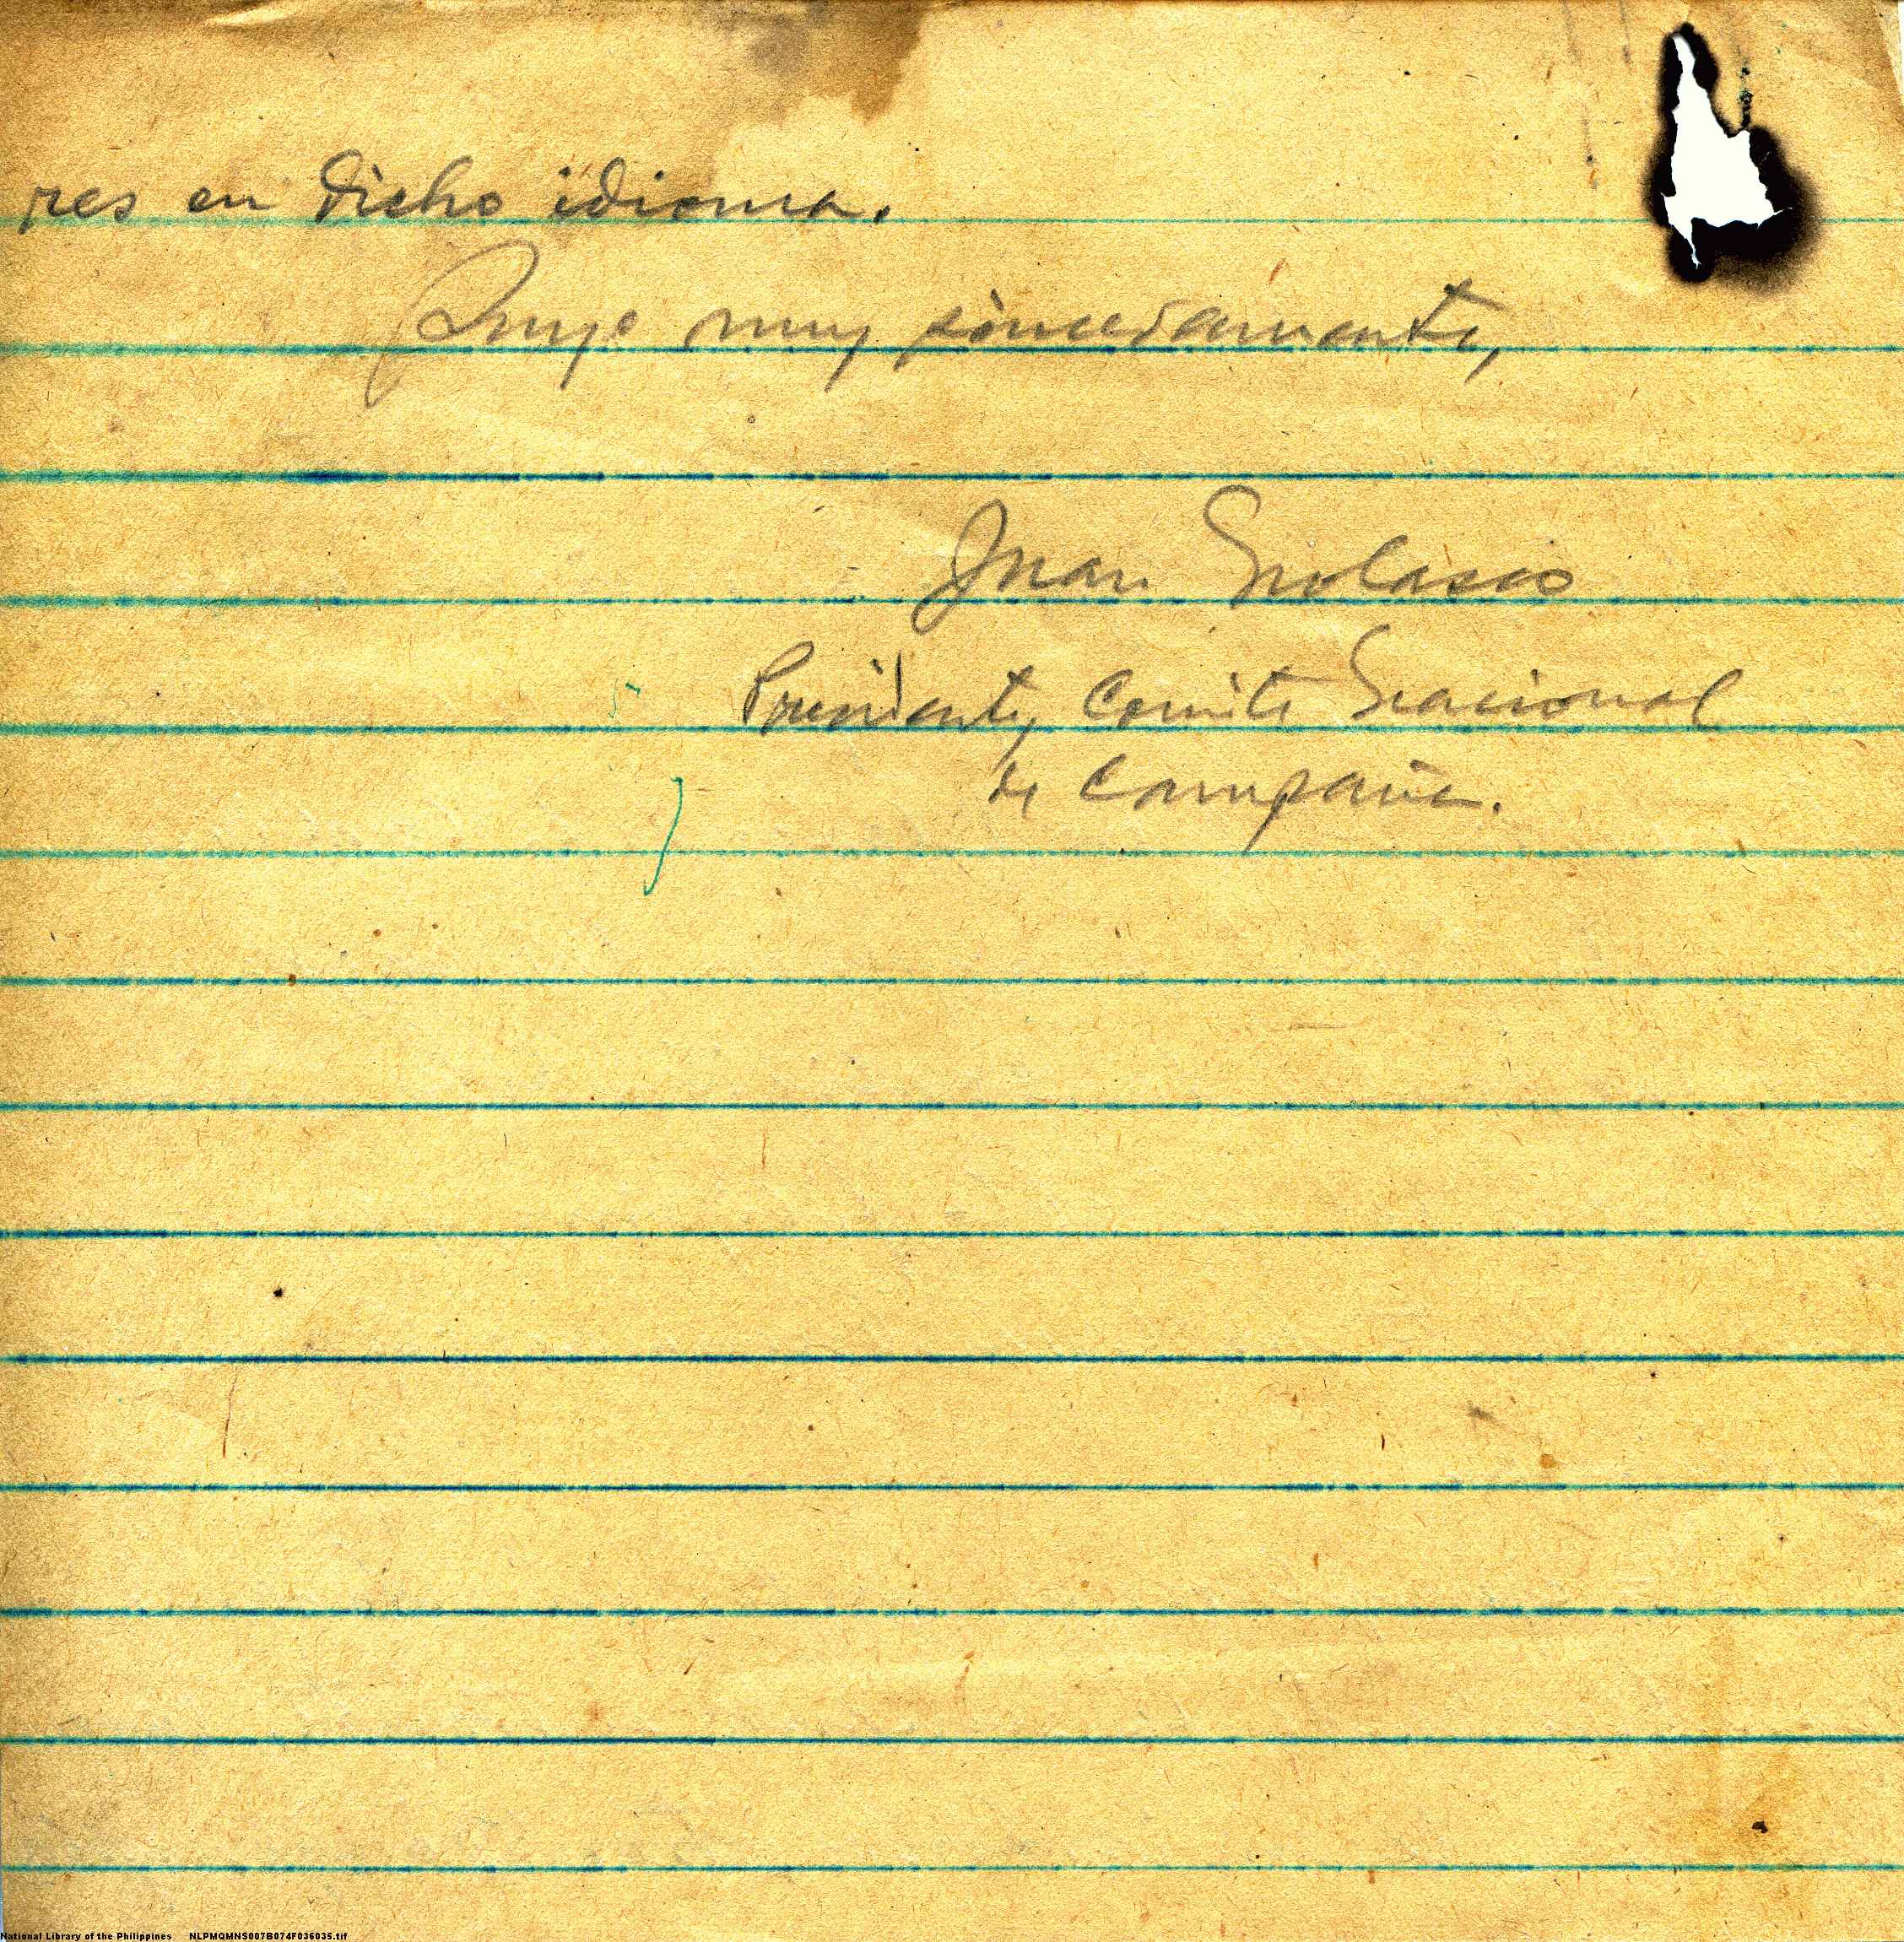 res en dicho idioma.
Suyo muy sinceramente,
Juan Nolasco
Presidente, Comite Nacional
de Campaña.
National Library of the Philippines NLPMQMNS007B074F036035.tif